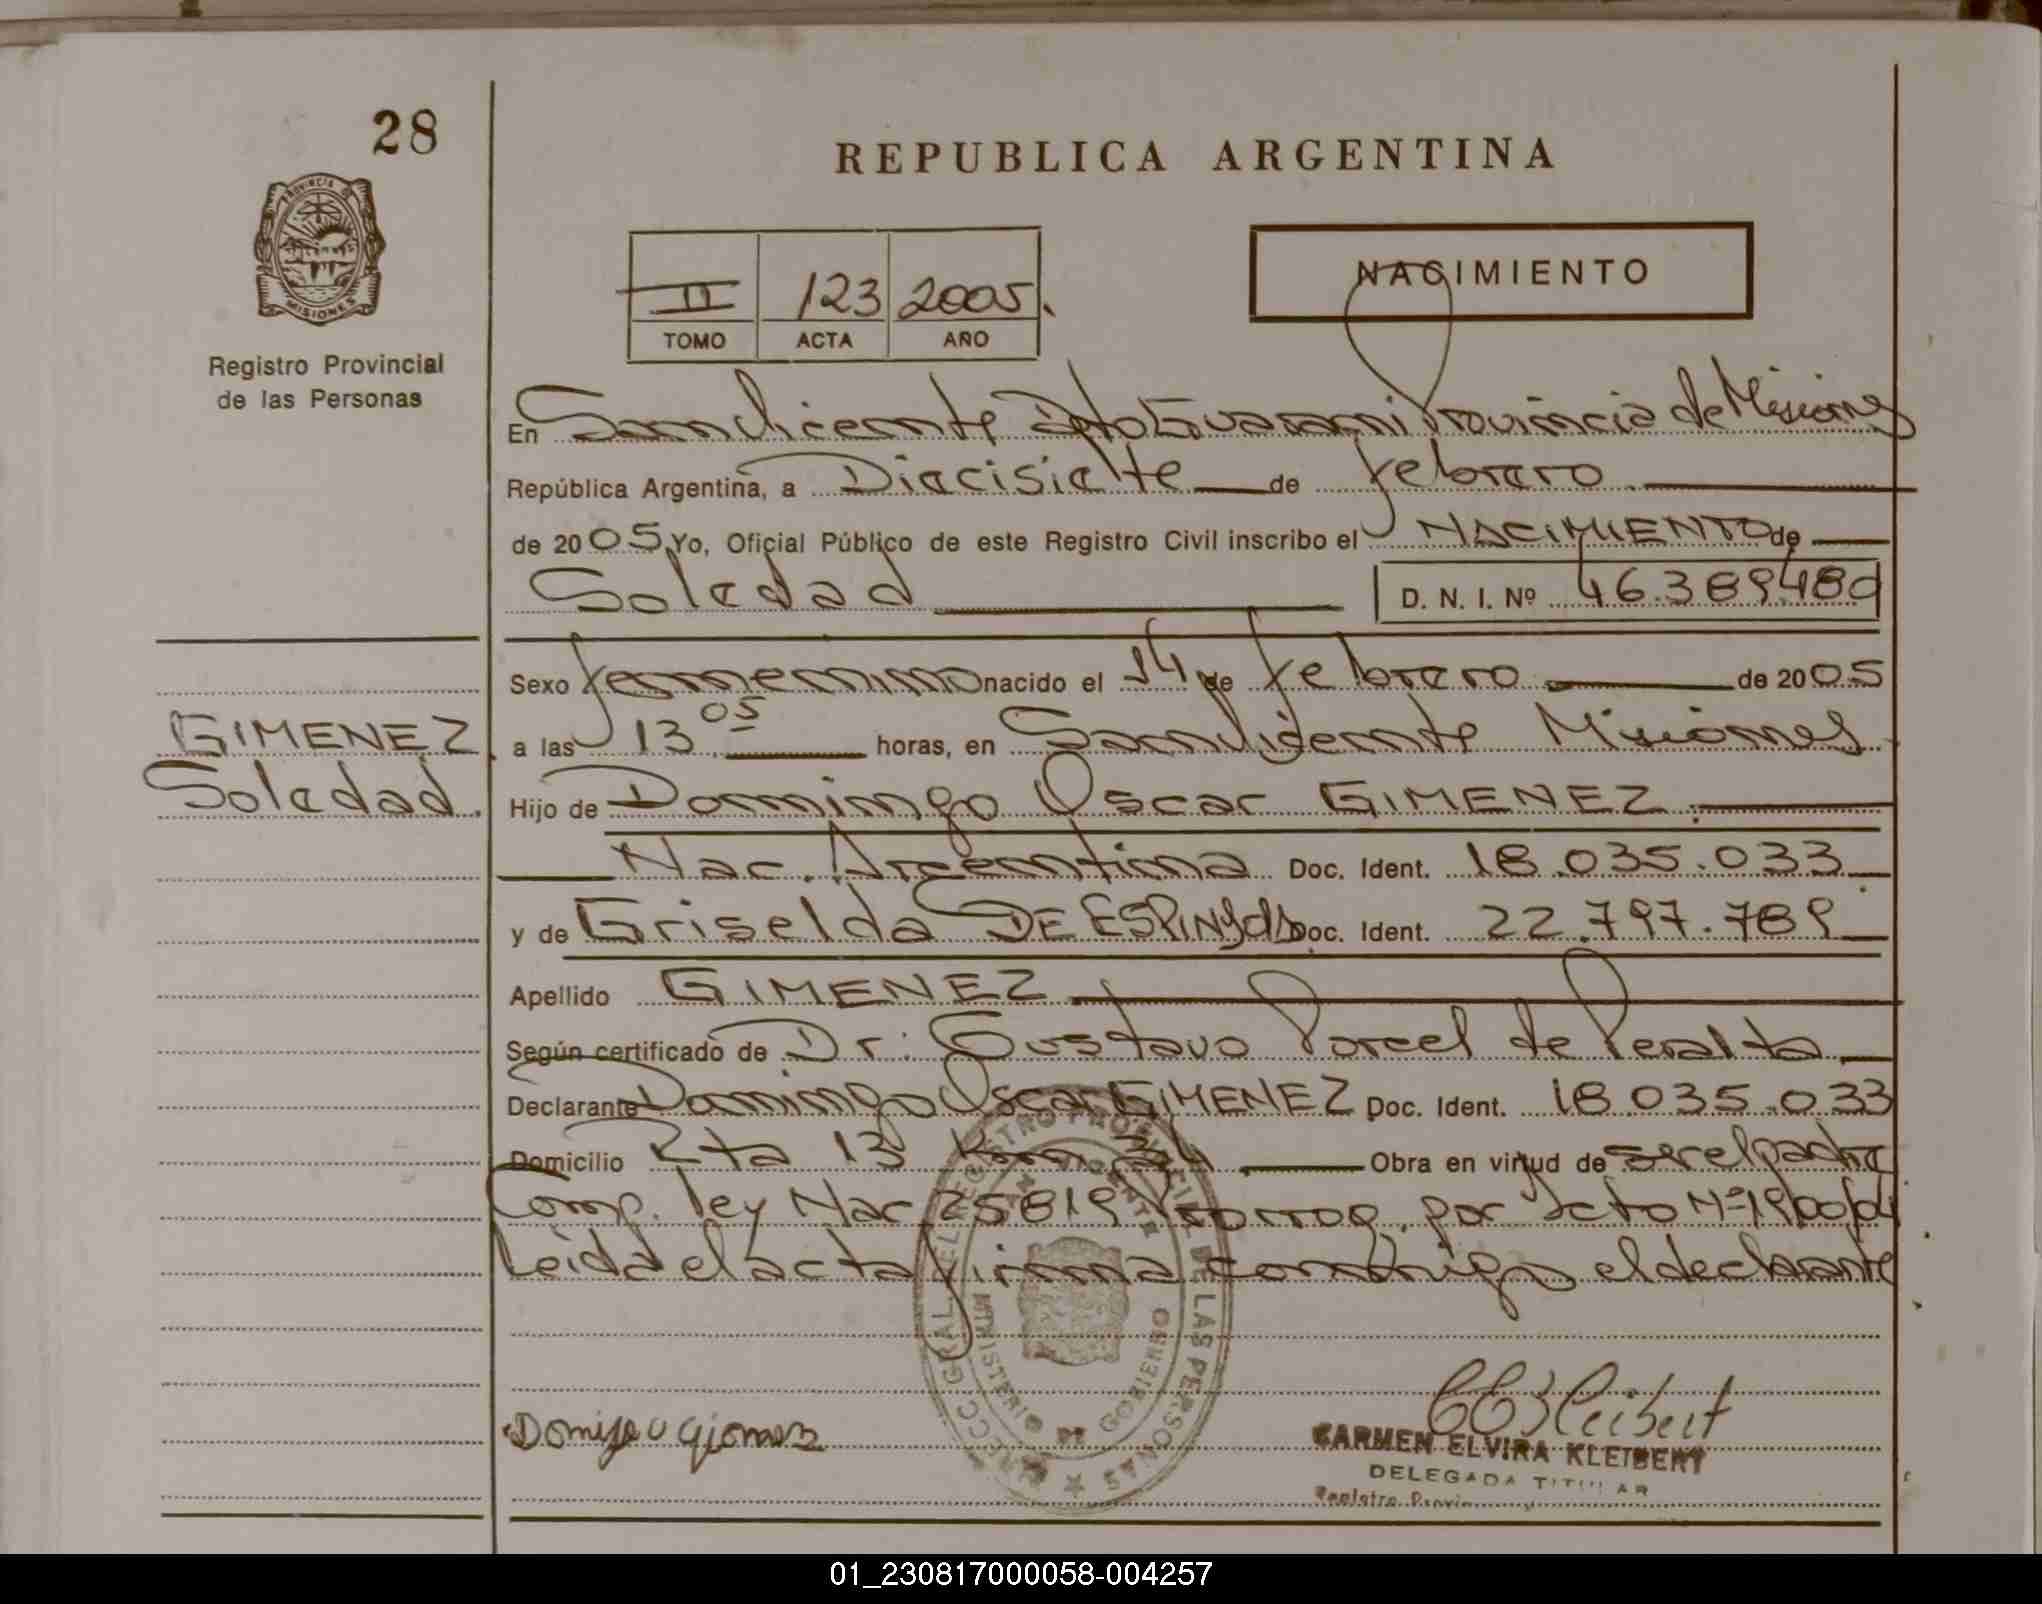 28
REPUBLICA ARGENTINA
PROVINCIA DE
MISIONES
Registro Provincial
de las Personas
II 123 2005.
TOMO ACTA AÑO
NACIMIENTO
En San Vicente Dpto Guarani Provincia de Misiones
República Argentina, a Diecisiete de febrero
de 2005 Yo, Oficial Público de este Registro Civil inscribo el NACIMIENTO de
Soledad D. N. I. Nº 46.389.480
Sexo femenino nacido el 14 de febrero de 2005
GIMENEZ
Soledad.
a las 13 05 horas, en San Vicente Misiones
Hijo de Domingo Oscar GIMENEZ
Nac. Argentina Doc. Ident. 18.035.033
y de Griselda DE ESPINDOLA Doc. Ident. 22.797.789
Apellido GIMENEZ
Según certificado de Dr: Gustavo Porcel de Peralta
Declarante Domingo Oscar GIMENEZ Doc. Ident. 18.035.033
Domicilio Rta 13 Km 34 Obra en virtud de ser el padre
Comp. ley Nac 25819 Prorrog. por Dcto Nº 1900/04
Leida el acta firma conmigo el declarante
DIRECC. GRAL. DEL REGISTRO PROVINCIAL DE LAS PERSONAS
SAN VICENTE
MINISTERIO DE GOBIERNO
CARMEN ELVIRA KLEIBERT
DELEGADA TITULAR
01_230817000058-004257